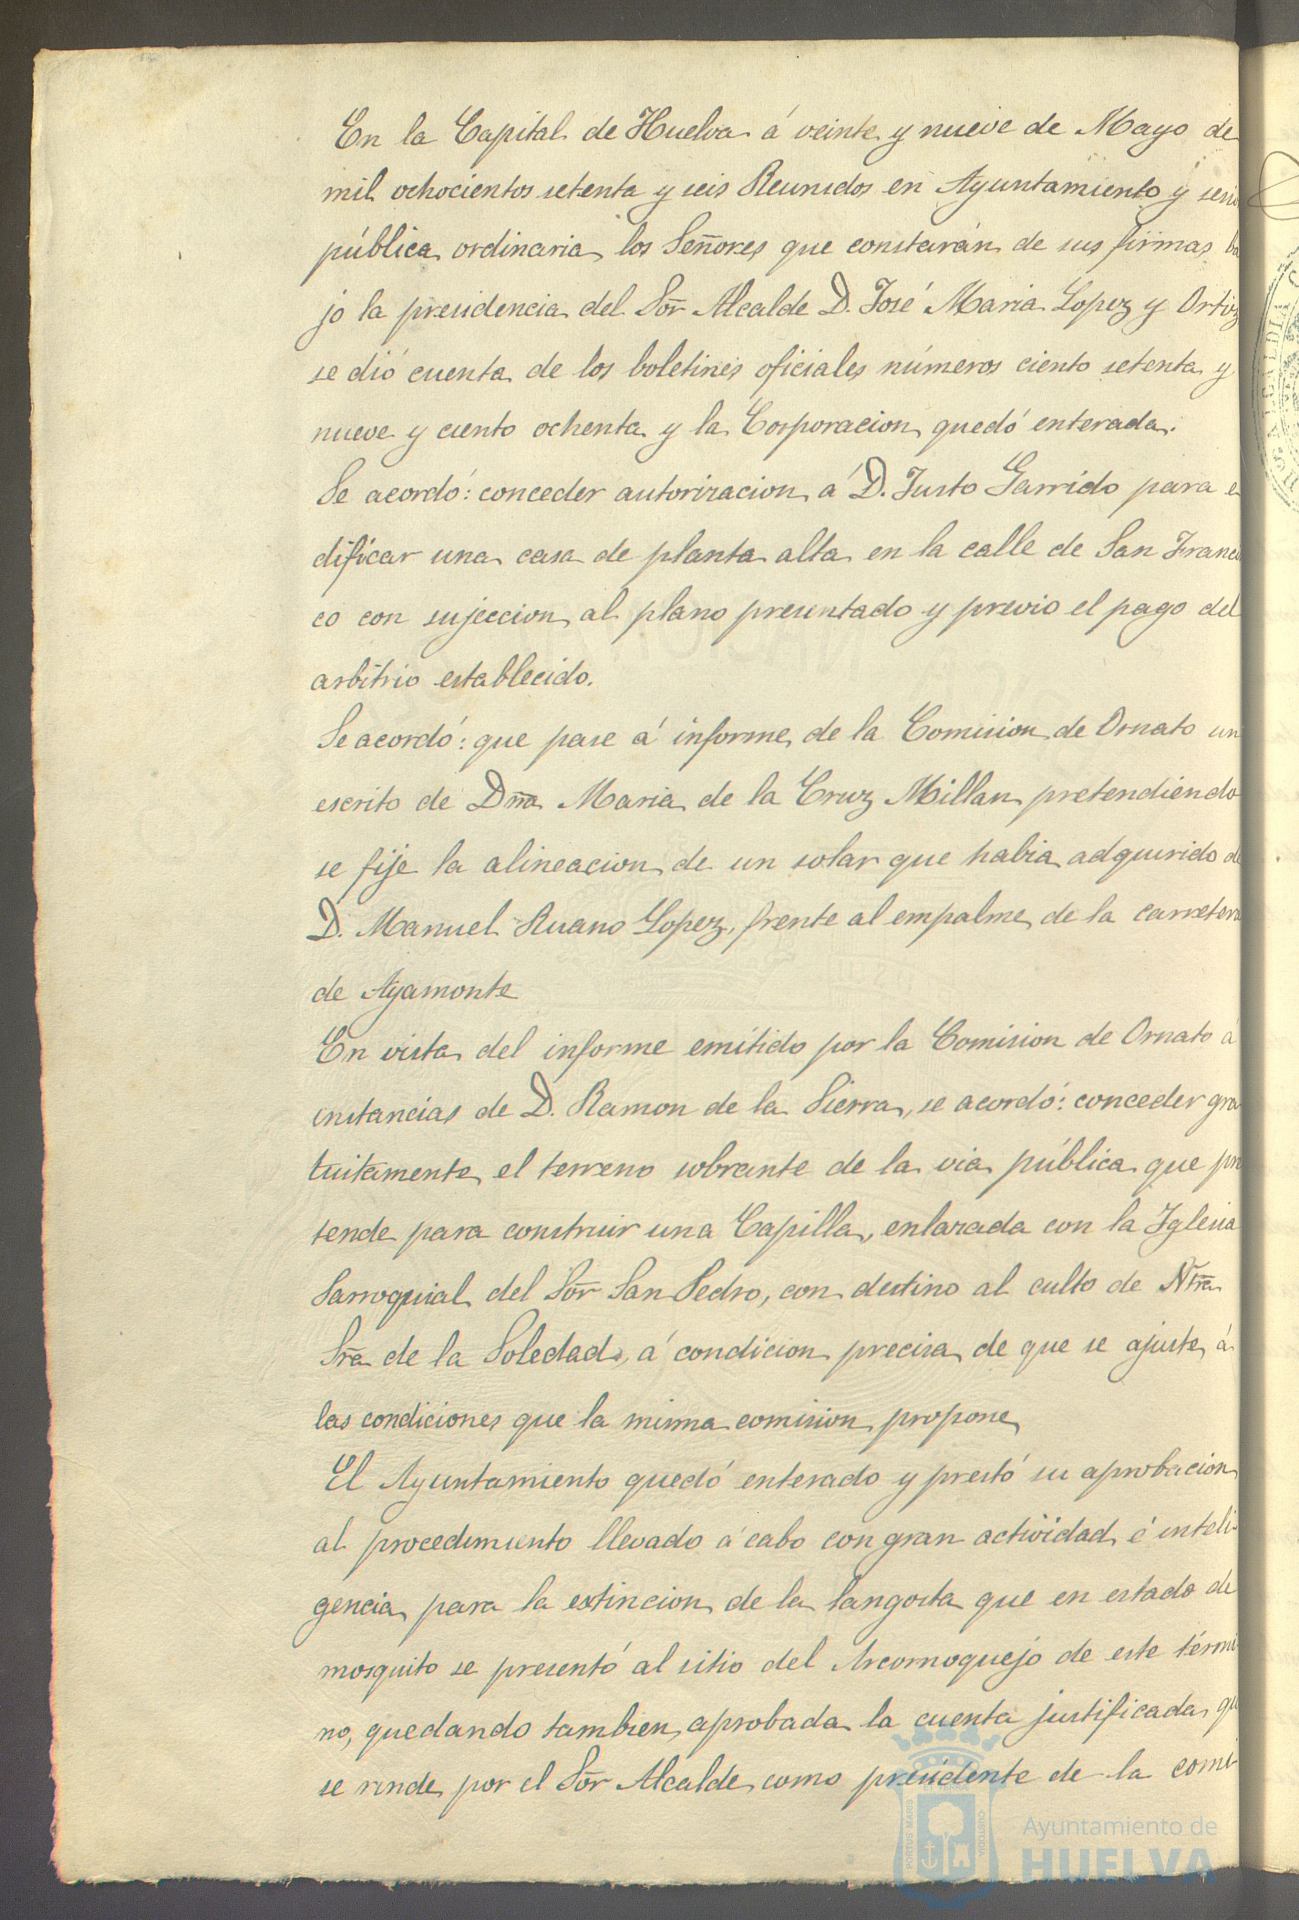 En la Capital de Huelva á veinte y nueve de Mayo de
mil ochocientos setenta y seis Reunidos en Ayuntamiento y sesio
pública ordinaria los Señores que constarán de sus firmas ba
jo la presidencia del Sõr Alcalde D. José Maria Lopez y Ortiz
se dió cuenta de los boletines oficiales números ciento setenta y
nueve y ciento ochenta y la Corporacion quedó enterada.
Se acordó: conceder autorizacion á D. Justo Garrido para e
dificar una casa de planta alta en la calle de San Francis
co con sujeccion al plano presentado y previo el pago del
arbitrio establecido.
Se acordó: que pase á informe de la Comision de Ornato un
escrito de Dña Maria de la Cruz Millan pretendiendo
se fije la alineacion de un solar que habia adquirido de
D. Manuel Ruano Lopez, frente al empalme de la carretera
de Ayamonte
En vista del informe emitido por la Comision de Ornato á
instancias de D. Ramon de la Sierra, se acordó: conceder gra
tuitamente el terreno sobrante de la via pública que pre
tende para construir una Capilla, enlazada con la Iglesia
Parroquial del Sõr San Pedro, con destino al culto de Ntra
Sra de la Soledad, á condicion precisa de que se ajuste á
las condiciones que la misma comision propone
El Ayuntamiento quedó enterado y prestó su aprobacion
al procedimiento llevado á cabo con gran actividad é inteli-
gencia para la extincion de la langosta que en estado de
mosquito se presentó al sitio del Arcornoquejo de este térmi
no, quedando tambien aprobada la cuenta justificada que
se rinde por el Sõr Alcalde como presidente de la comi
PORTUS MARIS CUSTODIA
Ayuntamiento de
HUELVA